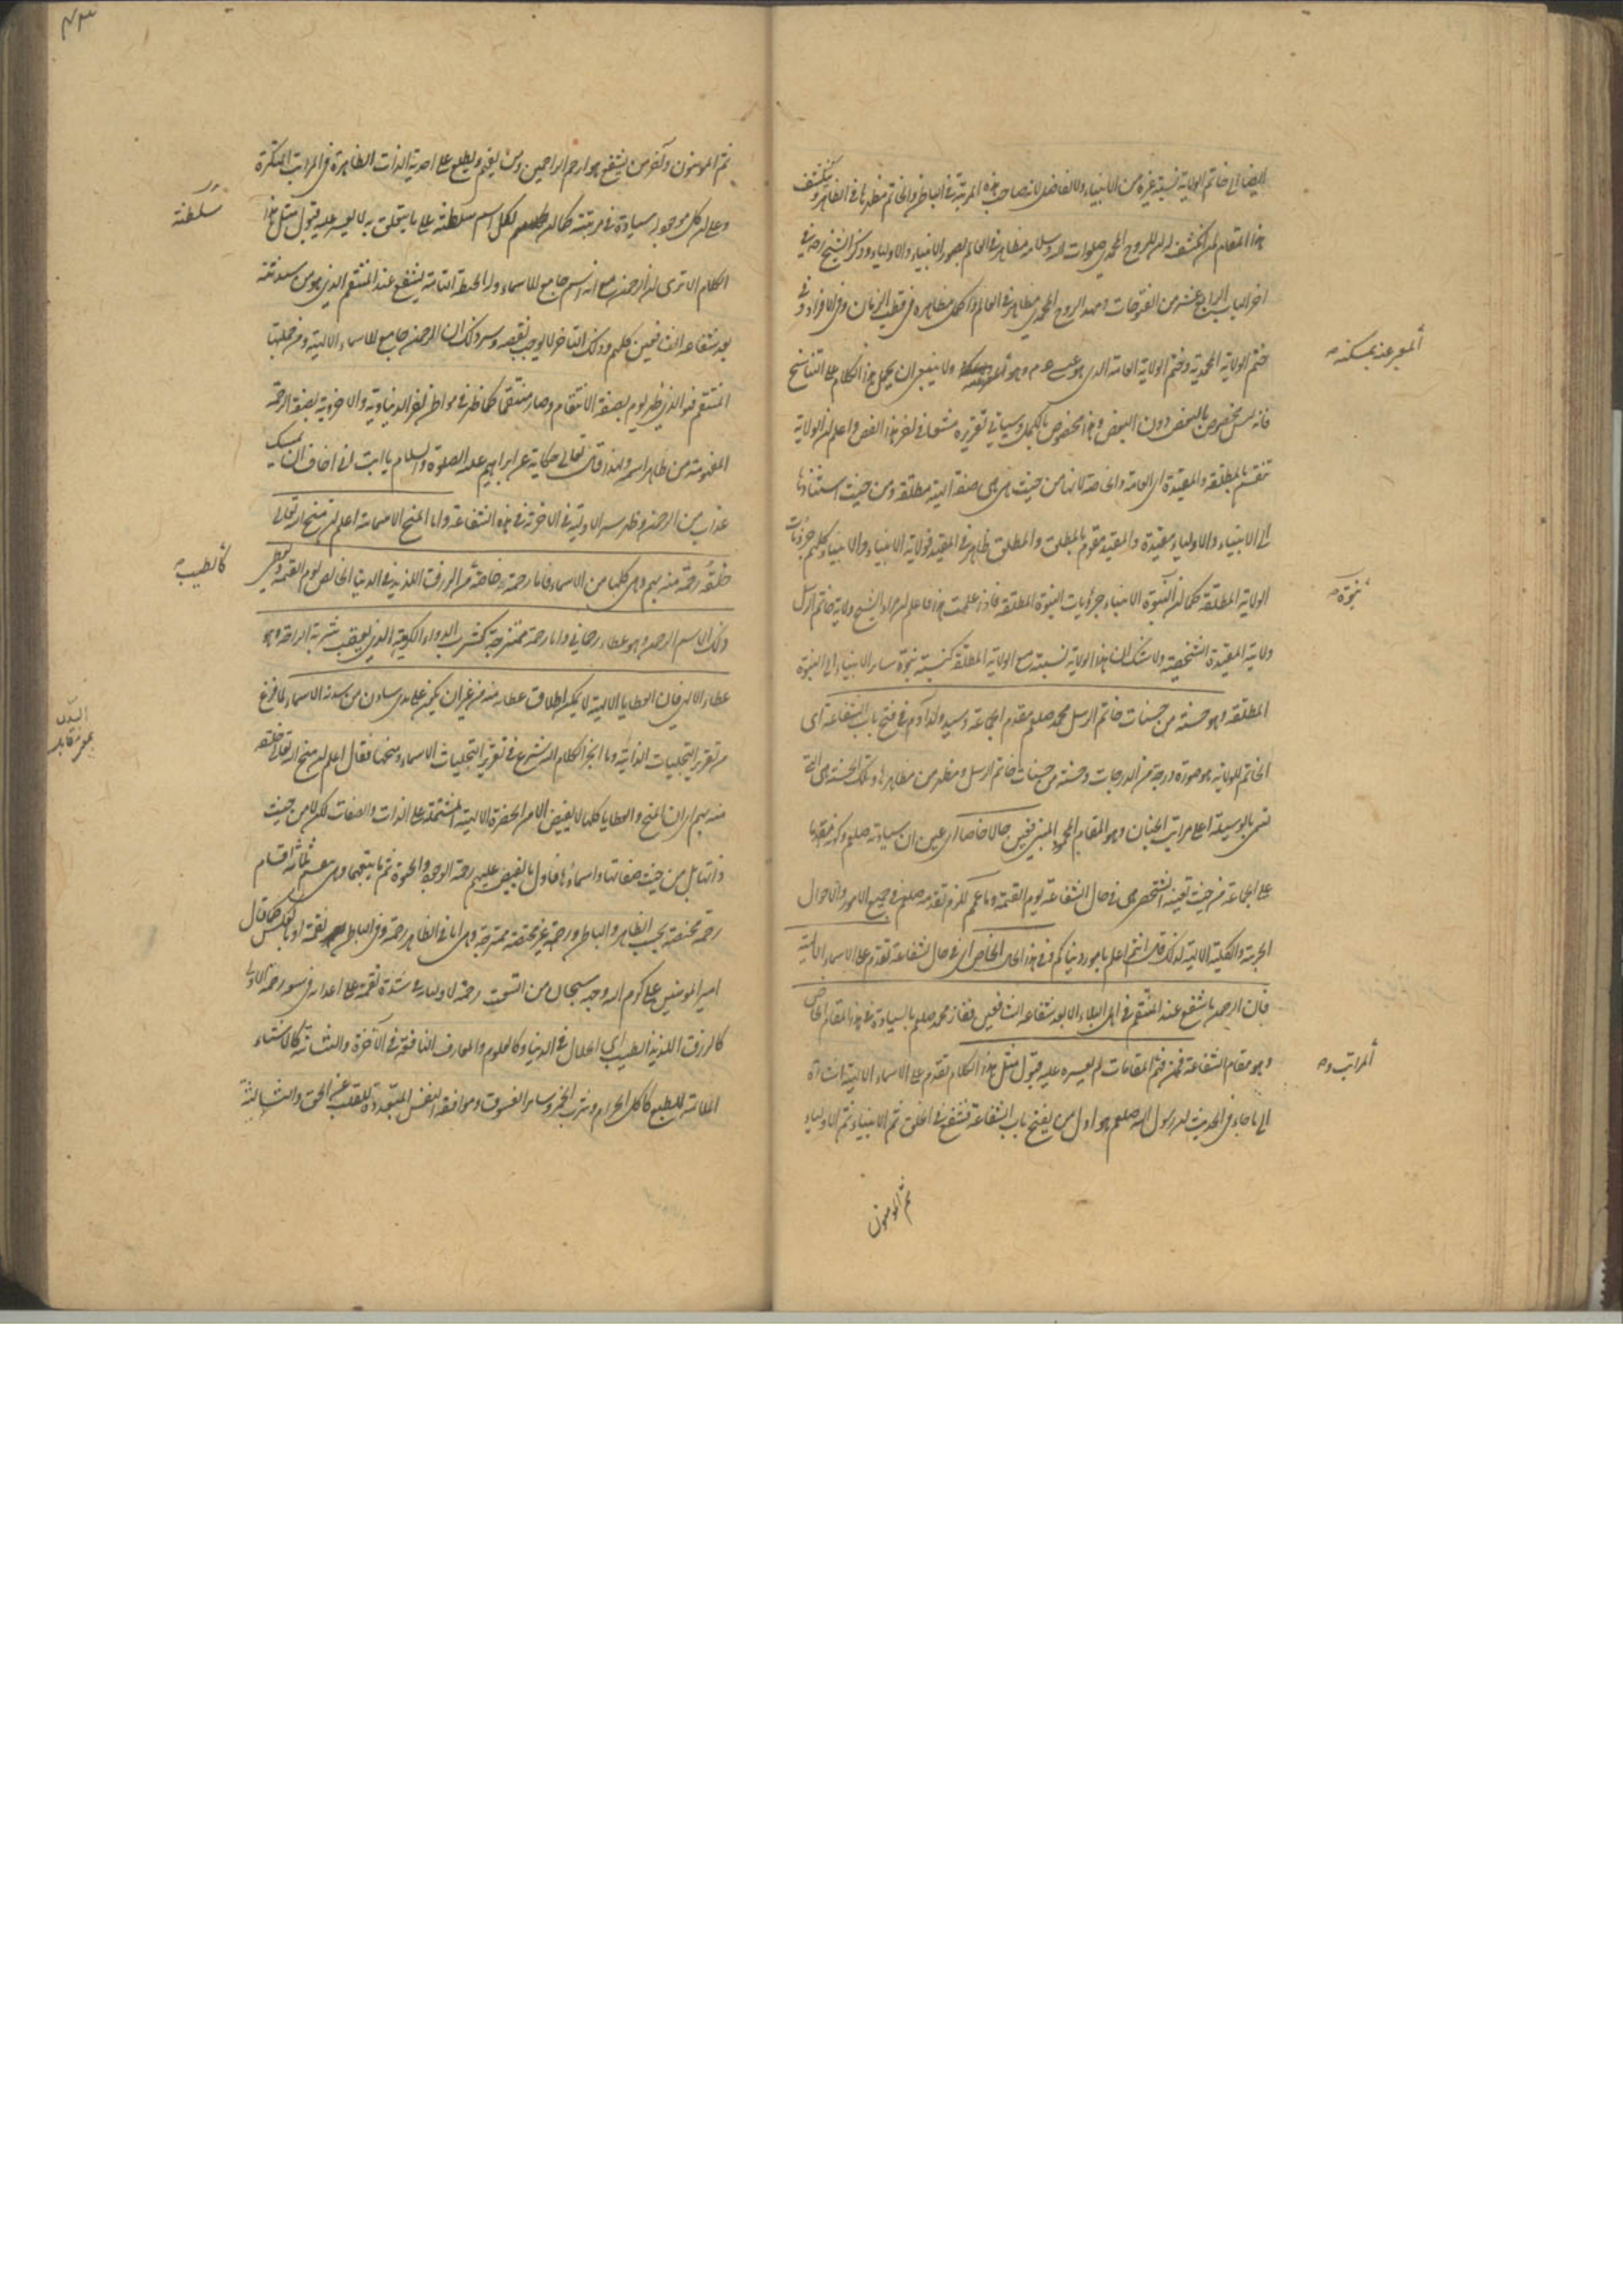 ايضا الى خاتم الولاية نسبة غيره من الانبياء ولا تفاضل لانه صاحب هذه المرتبة في الباطن والخاتم مظهرها في الظاهر وينكشف
هذا المقام لمن انكشف له ان للروح المحمدي صلوات الله وسلامه مظاهر في العالم بصور الانبياء والاولياء وذكر الشيخ رضه في
اخر الباب الرابع عشر من الفتوحات ولهذا الروح المحمدي مظاهر في العالم واكمل مظاهره في قطب الزمان وفي الافراد وفي
ختم الولاية المحمدية وختم الولاية العامة الذي هو عيسى عم وهو المعبر عنه بمسكنه ولا ينبغي ان يحمل هذا الكلام على التناسخ
فانه ليس بخصوص بالبعض دون البعض وهذا مخصوص بالكمل وسياتي تقريره مشبعا في اخر هذا الفص واعلم ان الولاية
تنقسم بالمطلقة والمقيدة اى العامة والخاصة لانها من حيث هي هي صفة الهية مطلقة ومن حيث استنادها
الى الانبياء والاولياء مقيدة والمقيد مقوم بالمطلق والمطلق ظاهر في المقيد فولاية الانبياء والاولياء كلهم جزئيات
الولاية المطلقة كما ان نبوة الانبياء جزئيات النبوة المطلقة فاذا علمت هذا فاعلم ان مراد الشيخ ولاية خاتم الرسل
ولايته المقيدة الشخصية ولا شك ان هذه الولاية نسبتها مع الولاية المطلقة كنسبة نبوة ساير الانبياء الى النبوة
المطلقة وهو حسنة من حسنات خاتم الرسل محمد صلعم مقدم الجماعة وسيد ولد آدم في فتح باب الشفاعة اى
الخاتم للولاية هو صورة درجة من الدرجات وحسنة من حسنات خاتم الرسل ومظهر من مظاهرها وتلك الحسنة هي التي
تسمى بالوسيلة اعلى مراتب الجنان وهو المقام المحمود المبني فعين حالا خاصا اى عين ان سيادته صلعم وكونه مقدما
على الجماعة من حيث تعينه الشخصي هي في حال الشفاعة يوم القيمة وما عمم للزم تقدمه صلعم في جميع الامور والاحوال
الجزئية والكلية الالهية لذلك قال انتم اعلم بامور دنياكم وفي هذا الحال الخاص اى في حال شفاعة تقدم على الاسماء الالهية
فان الرحمن ما شفع عند المنتقم في اهل البلاء الا بعد شفاعة الشافعين ففاز محمد صلعم بالسيادة في هذا المقام الخاص
وهو مقام الشفاعة فمن فهم المراتب والمقامات لم يعسر عليه قبول مثل هذا الكلام تقدم على الاسماء الالهية اشارة
الى ما جاء في الحديث ان رسول الله صلعم هو اول من يفتح باب الشفاعة فتشفع في الخلق ثم الانبياء ثم الاولياء
ثم المومنون
المعبر عنه بمسكنه
نبوة
المراتب و
ثم المومنون وآخر من يشفع هو ارحم الراحمين ومن يفهم ويطلع على احدية الذات الظاهرة في المراتب المتكثرة
وعلم ان لكل موجود سيادة في مرتبته كما ان لكل اسم سلطنة على ما يتعلق به لا يعسر عليه قبول مثل هذا
الكلام الا ترى ان الرحمن مع انه اسم جامع للاسماء وله الحيطة التامة يشفع عند المنتقم الذي هو من سدنته
بعد شفاعة الشافعين كلهم وذلك التاخر لا يوجب نقصه وسر ذلك ان الرحمن جامع للاسماء الالهية ومن جملتها
المنتقم فهو الذي ظهر يوم بصفة الانتقام وصار منتقما كما ظهر في مواطن اخر الدنياوية والاخروية بصفة الرحمة
المفهومة من ظاهر اسمه ولهذا قال تعالى حكاية عن ابراهيم عليه الصلوة والسلام يا ابت اني اخاف ان يمسك
عذاب من الرحمن وظهر سر الاولية في الاخرية في هذه الشفاعة واما المنح الاسمائية اعلم ان منح الله تعالى
خلقه رحمة منه بهم وهي كلها من الاسماء فاما رحمة خاصة كالطيب من الرزق اللذيذ في الدنيا الخالص يوم القيمة ويعطى
ذلك الاسم الرحمن وهو عطاء رحماني واما رحمة ممتزجة كشرب الدواء الكريه الذي يعقب شربه الراحة وهو
عطاء الاهي فان العطايا الالهية لا يمكن اطلاق عطائه منه من غير ان يكون على يدي سادن من سدنة الاسماء لما فرغ
من تقرير التجليات الذاتية وما انجر الكلام اليه شرع في تقرير التجليات الاسماء ومنحها فقال اعلم ان منح الله تعالى خلقه
منه بهم اى ان المنح والعطايا كلها لا يفيض الا من الحضرة الالهية المشتملة على الذات والصفات لكن لا من حيث
ذاتها بل من حيث صفاتها واسمائها فاول ما يفيض عليهم رحمة الوجود والحيوة ثم ما يتبعهما وهي منقسم ثلثة اقسام
رحمة محضة بحسب الظاهر والباطن ورحمة غير محضة ممتزجة وهي اما في الظاهر رحمة وفي الباطن نقمة او بالعكس كما قال
امير المومنين على كرم الله وجهه سبحان من اتسعت رحمته لاوليائه في شدة نقمته على اعدائه في سعة رحمته الاولى
كالرزق اللذيذ الطيب اى الحلال في الدنيا وكالعلوم والمعارف النافعة في الآخرة والثانية كالاشياء
الملائمة للطبع كاكل الحرام وشرب الخمر وساير الفسوق وموافقة النفس المبعدة للقلب عن الحق والثالثة
سلطنة
كالطيب